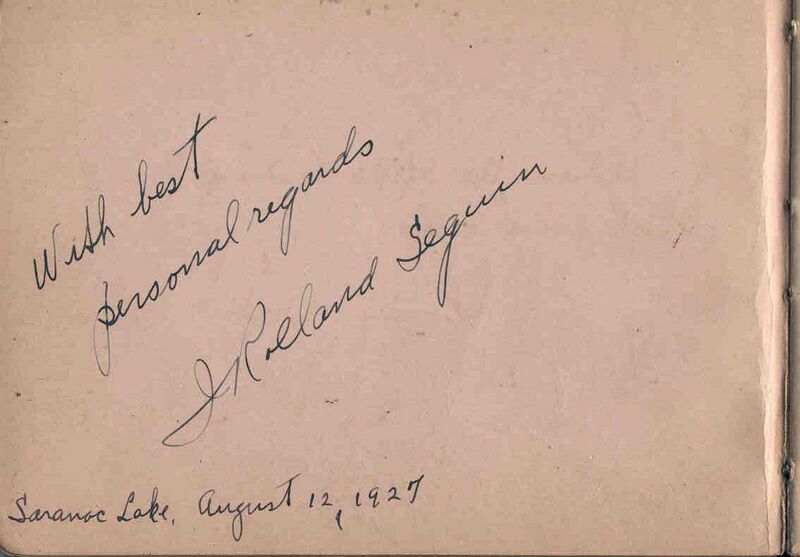 With best
personal regards
J Rolland Seguin
Saranac Lake, August 12, 1927